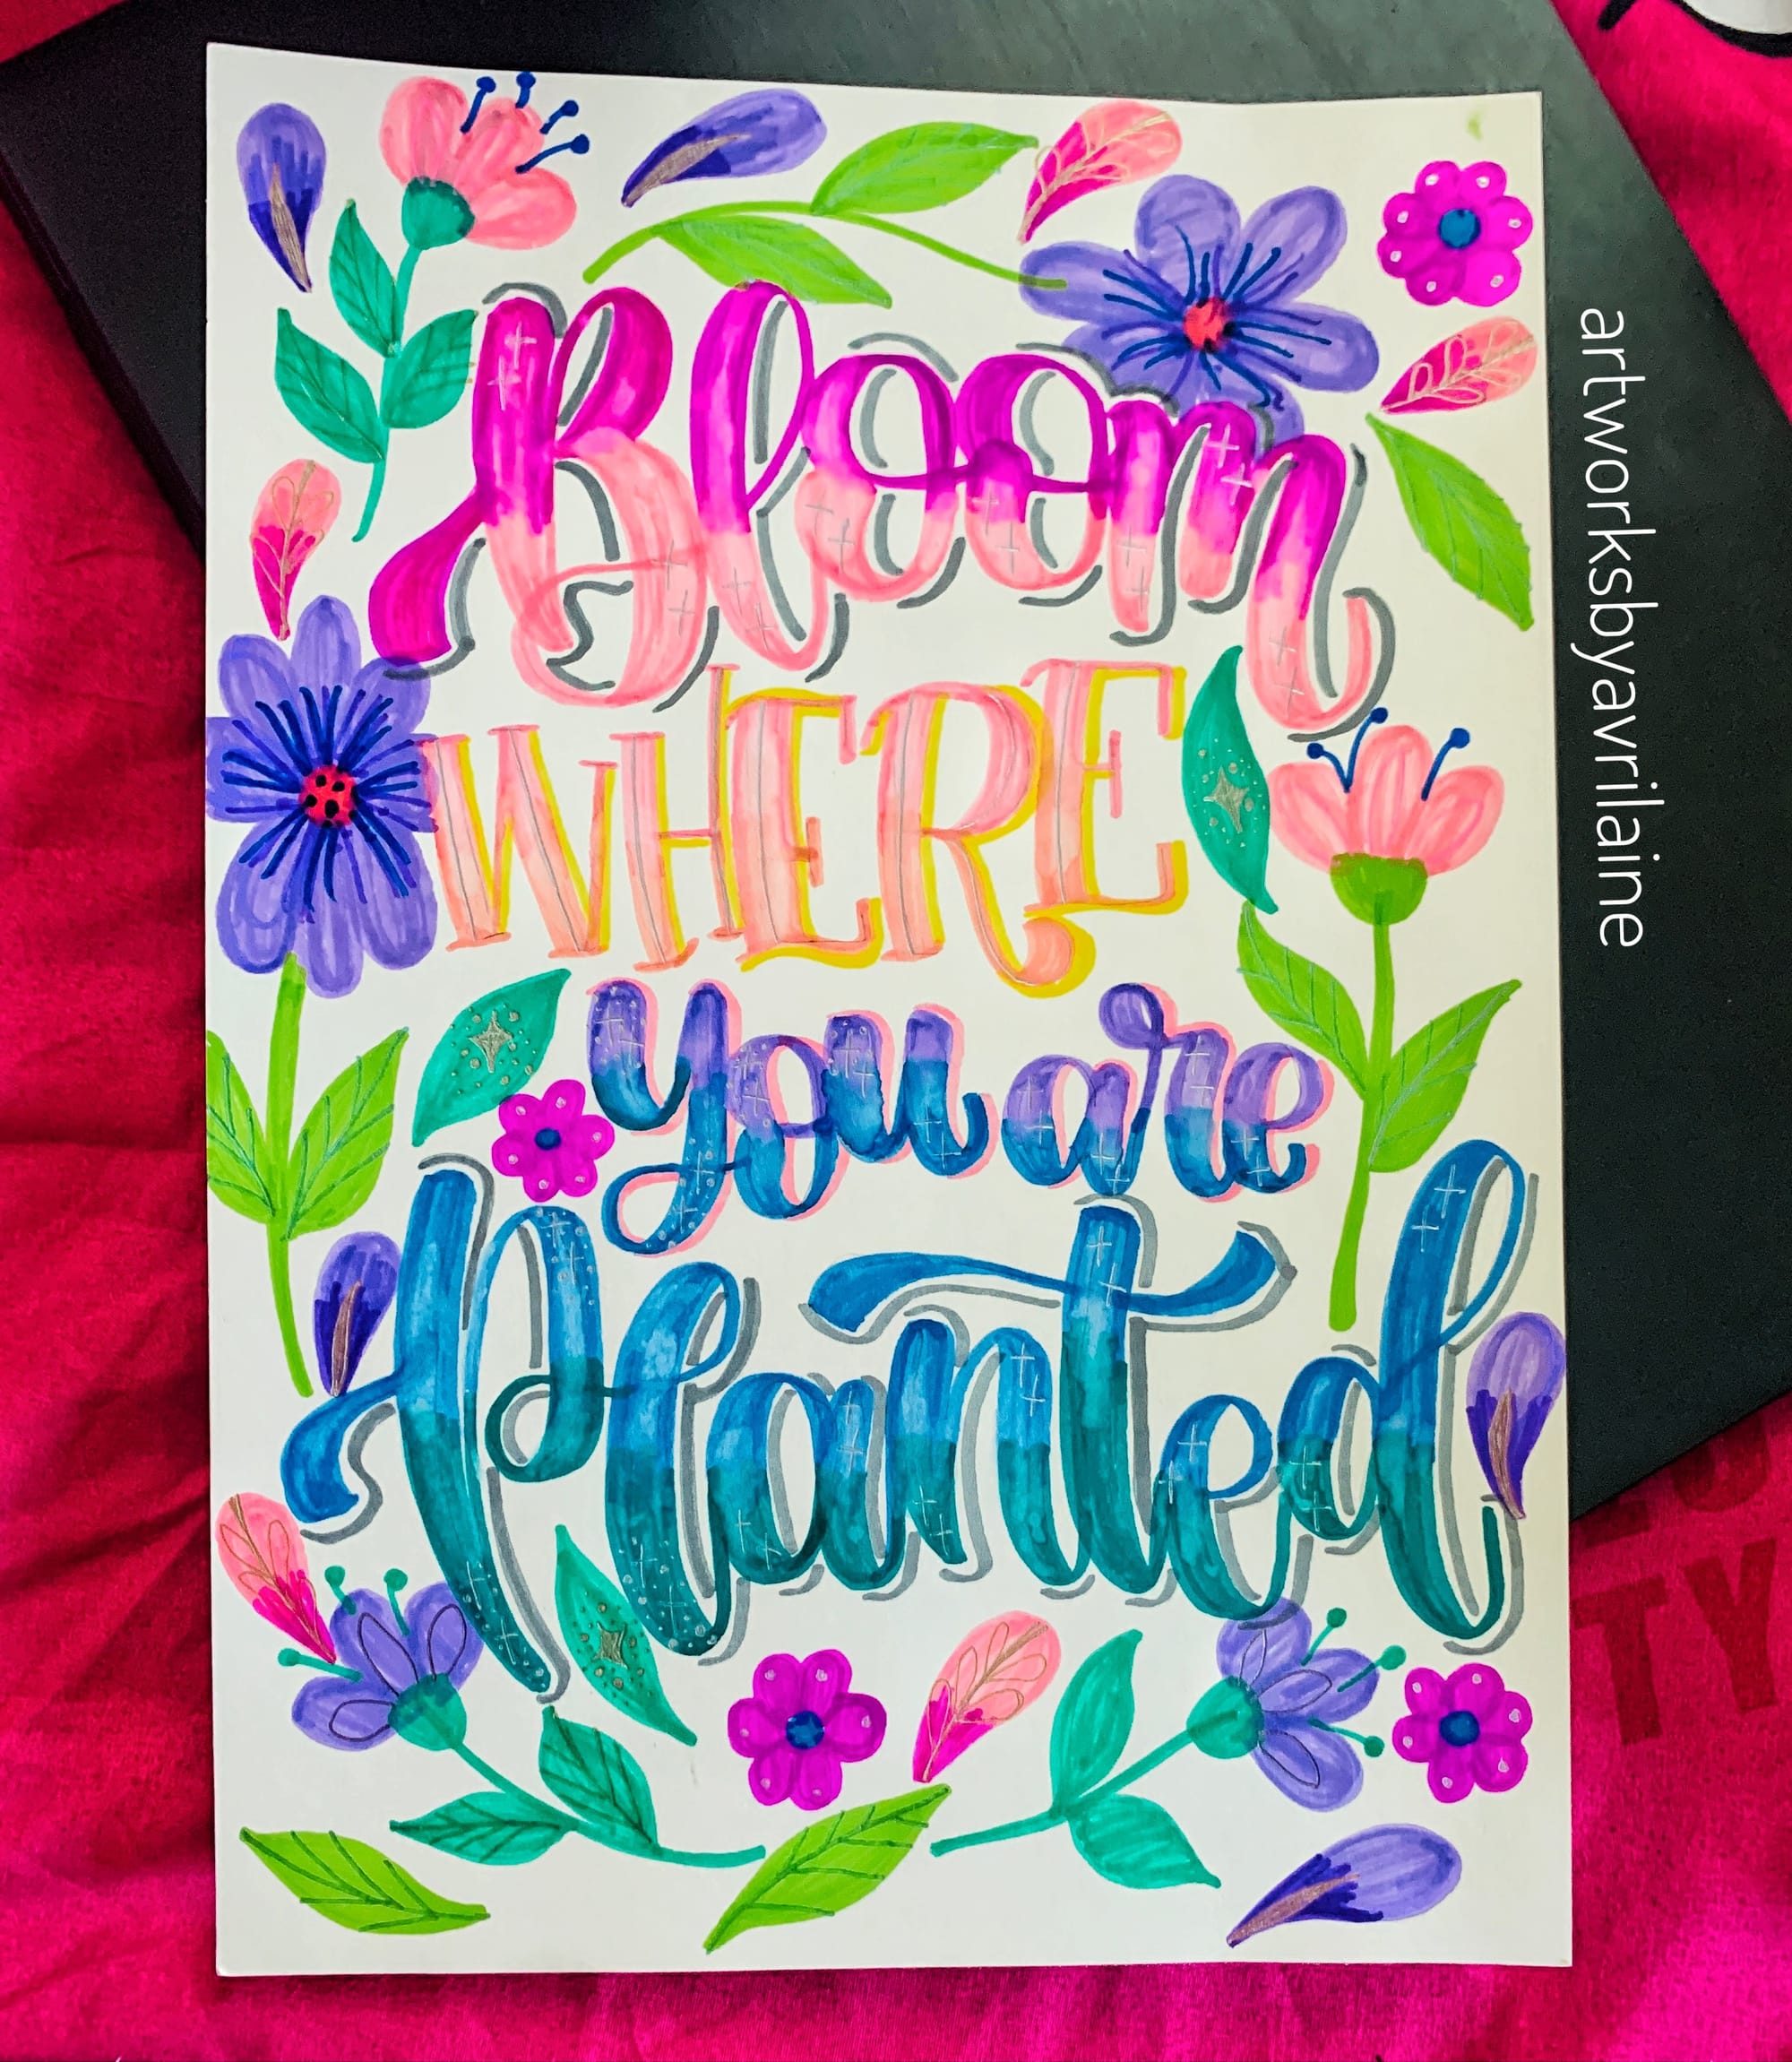 Bloom
WHERE
you are
Planted
artworksbyavrilaine
TY